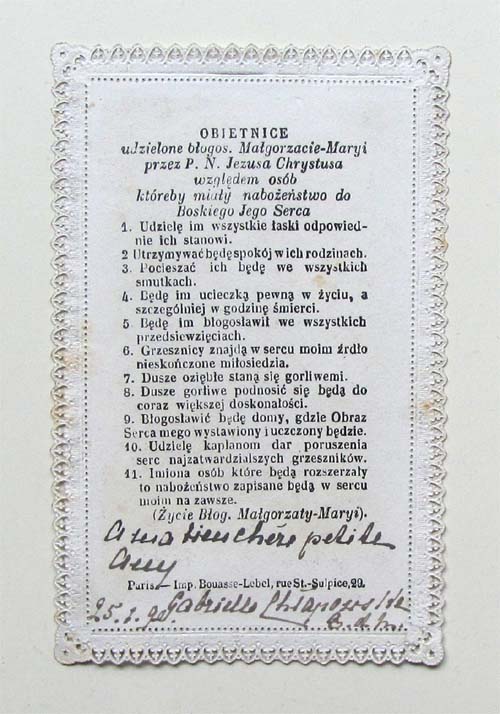 OBIETNICE
udzielone błogos. Małgorzacie-Maryi
przez P. N. Jezusa Chrystusa
względem osób
któreby miały nabożeństwo do
Boskiego Jego Serca
1. Udzielę im wszystkie łaski odpowied-
nie ich stanowi.
2 Utrzymywać będę spokój w ich rodzinach.
3. Pocieszać ich będę we wszystkich
smutkach.
4. Będę im ucieczką pewną w życiu, a
szczególniej w godzinę śmierci.
5 Będę im błogosławił we wszystkich
przedsiewzięciach.
6. Grzesznicy znajdą w sercu moim źrdło
nieskończone miłosiedzia.
7. Dusze oziębłe staną się gorliwemi.
8. Dusze gorliwe podnosić się będą do
coraz większej doskonałości.
9. Błogosławić będę domy, gdzie Obraz
Serca mego wystawiony i uczczony będzie.
10. Udzielę kapłanom dar poruszenia
serc najzatwardzialszych grzeszników.
11. Imiona osób które będą rozszerzały
to nabożeństwo zapisane będą w sercu
moim na zawsze.
(Życie Błog. Małgorzaty-Maryi).
A ma bien chère petite
Paris — Imp. Bouasse-Lebel, rue St.-Sulpice, 29.
25.1. Gabrielle